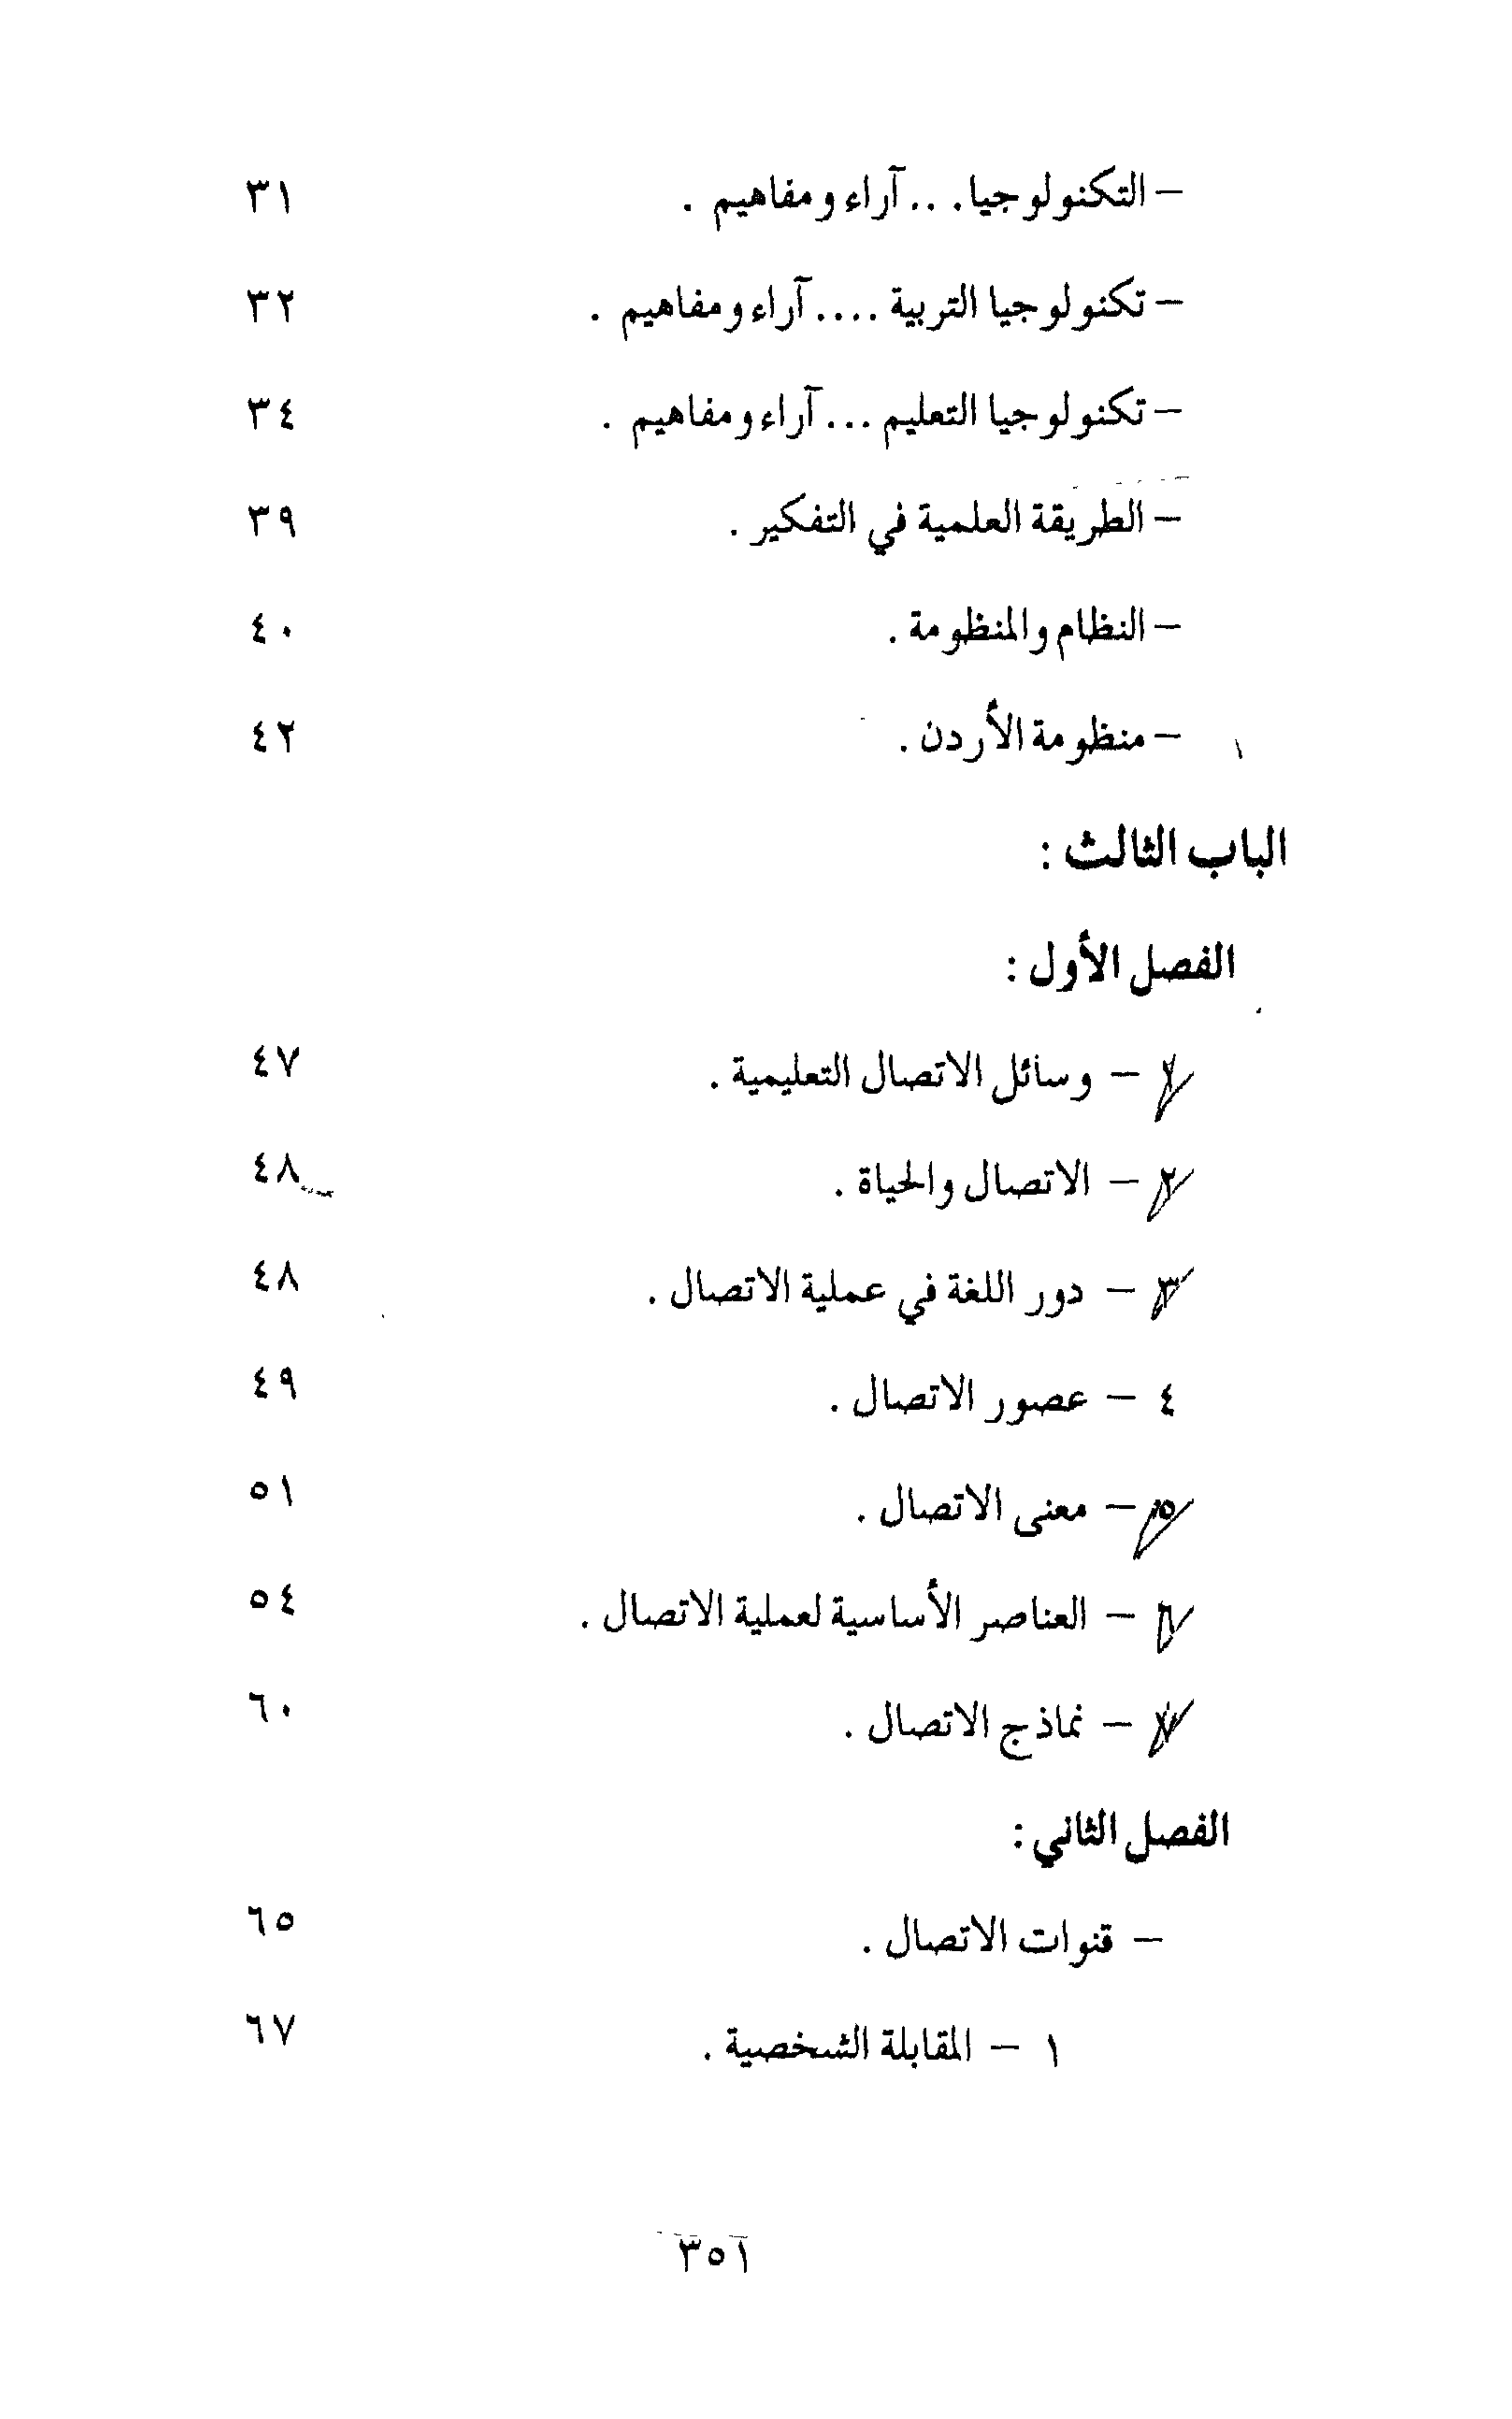 – التكنولوجيا. . . . آراء ومفاهيم . ٣١
– تكنولوجيا التربية .... آراء ومفاهيم . ٣٢
– تكنولوجيا التعليم ... آراء ومفاهيم . ٣٤
– الطريقة العلمية في التفكير . ٣٩
– النظام والمنظومة . ٤٠
– منظومة الأردن . ٤٢
الباب الثالث :
الفصل الأول :
١ – وسائل الاتصال التعليمية . ٤٧
٢ – الاتصال والحياة . ٤٨
٣ – دور اللغة في عملية الاتصال . ٤٨
٤ – عصور الاتصال . ٤٩
٥ – معنى الاتصال . ٥١
٦ – العناصر الأساسية لعملية الاتصال . ٥٤
٧ – نماذج الاتصال . ٦٠
الفصل الثاني :
– قنوات الاتصال . ٦٥
١ – المقابلة الشخصية . ٦٧
٣٥١